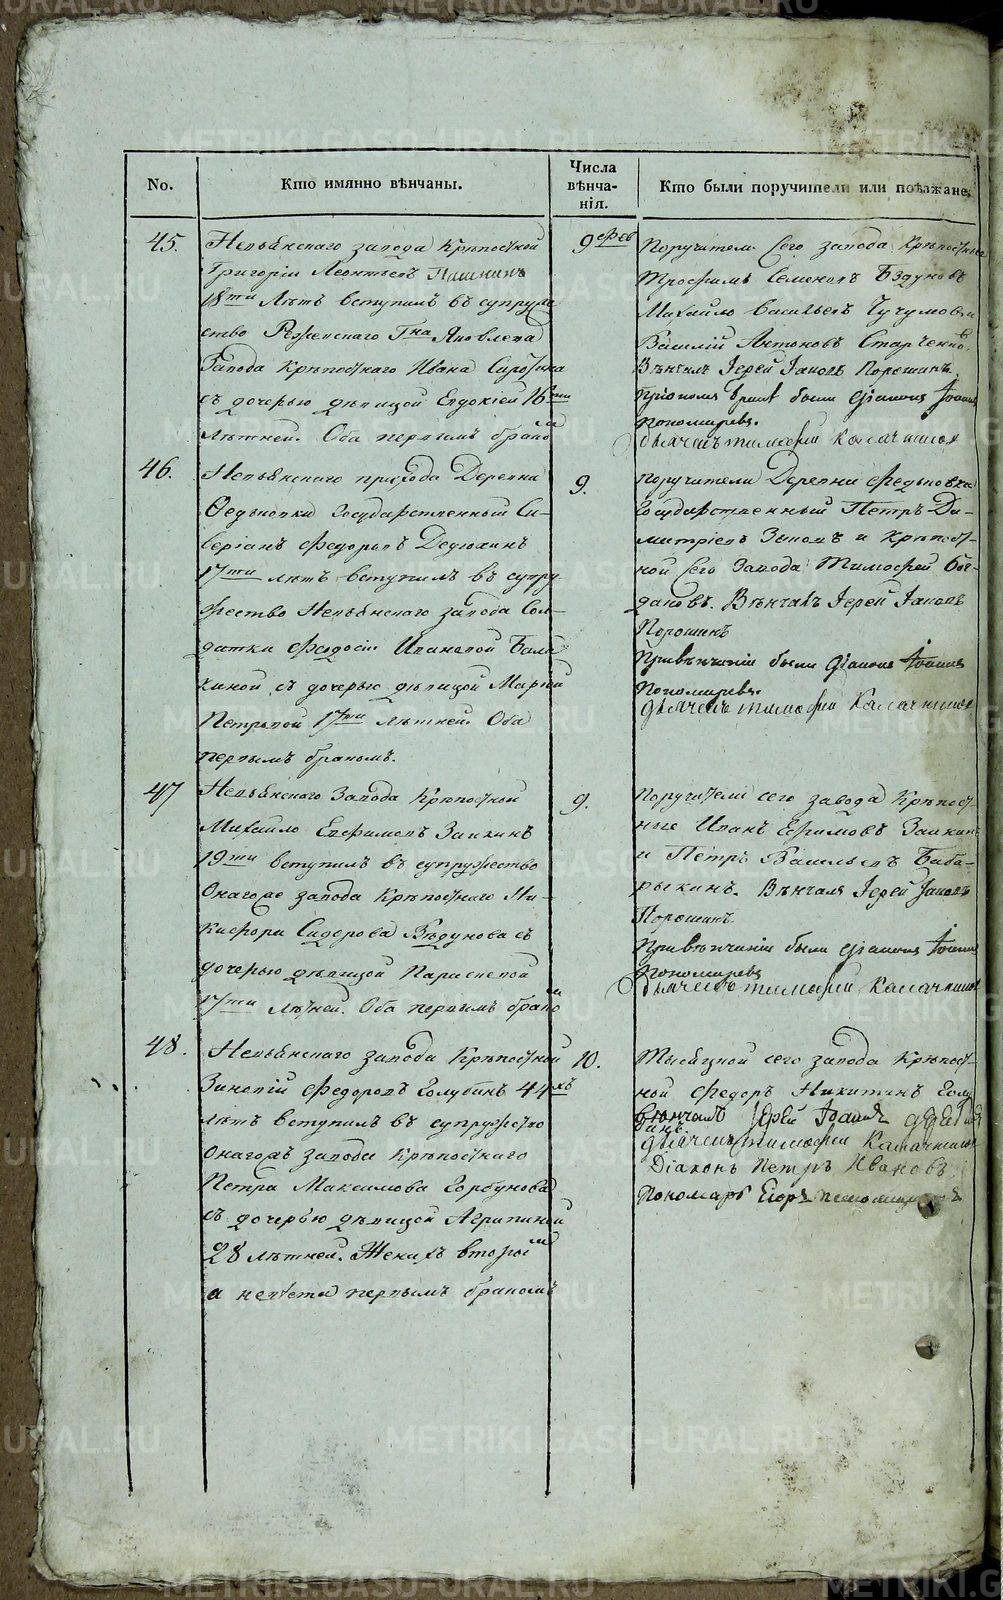 No.
Кто имянно вѣнчаны.
Числа
вѣнча-
нія.
Кто были поручители или поѣзжане.
45.
Невьянскаго завода Крѣпостной
Григорій Леонтьевъ
18ти Лѣтъ вступилъ въ супруже
ство Режевскаго Гна Яковлева
Завода Крѣпостнаго Ивана
съ дочерью дѣвицой Евдокіей 16ти
лѣтней. Оба первымъ бракомъ
9 фев
Поручители Сего завода Крѣпостные
Трофимъ Семеновъ Бздуновъ
Михайло Васильевъ
Василій Антоновъ
Вѣнчалъ Іерей Іаковъ Порошинъ.
были
Пономаревъ.
дьячекъ тимофей Калачниковъ
46.
Невьянскаго прихода Деревни
Федьковки Государственный Си-
веріанъ Федоровъ Дедюхинъ
17ти лѣтъ вступилъ въ супру
жество Невьянскаго завода Сол-
датки Феодосіи Ивановой
съ дочерью дѣвицой Маріей
Петровой 17ти лѣтней. Оба
первымъ бракомъ.
9.
Поручители Деревни Федьковки
Государственный Петръ Ди-
митріевъ и Крѣпост-
ной Сего Завода Тимофей Бог-
дановъ. Вѣнчалъ Іерей Іаковъ
Порошинъ
При вѣнчаніи были
Пономаревъ.
дьячекъ тимофей Калачниковъ
47
Невьянскаго Завода Крѣпостной
Михайло Евфимовъ Заикинъ
19ти вступилъ въ супружество
Онагоже завода Крѣпостнаго Ни-
кифора Сидорова Бздунова съ
дочерью дѣвицой Параскевой
17ти лѣтней. Оба первымъ бракомъ
9.
Поручители сего завода Крѣпост-
ные Иванъ Ефимовъ Заикинъ
и Петръ Васильевъ Баба-
рыкинъ. Вѣнчалъ Іерей Іаковъ
Порошинъ
При вѣнчаніи были
Пономаревъ
дьячекъ тимофей Калачниковъ
48.
Невьянскаго завода Крѣпостной
Зиновій Федоровъ Голубинъ 44хъ
лѣтъ вступилъ въ супружество
Онагожъ завода Крѣпостнаго
Петра Максимова Горбунова
съ дочерью дѣвицой Агрипиной
28 лѣтней. Женихъ вторымъ
а невѣста первымъ бракомъ
10.
Тысяцкой сего завода Крѣпост-
ной Федоръ Никитинъ Голу
бинъ.
вѣнчалъ Іерей Іоаннъ
дьячекъ тимофей Калачниковъ
Діаконъ Петръ Ивановъ
Пономарь Егоръ
METRIKI.GASO-URAL.RU